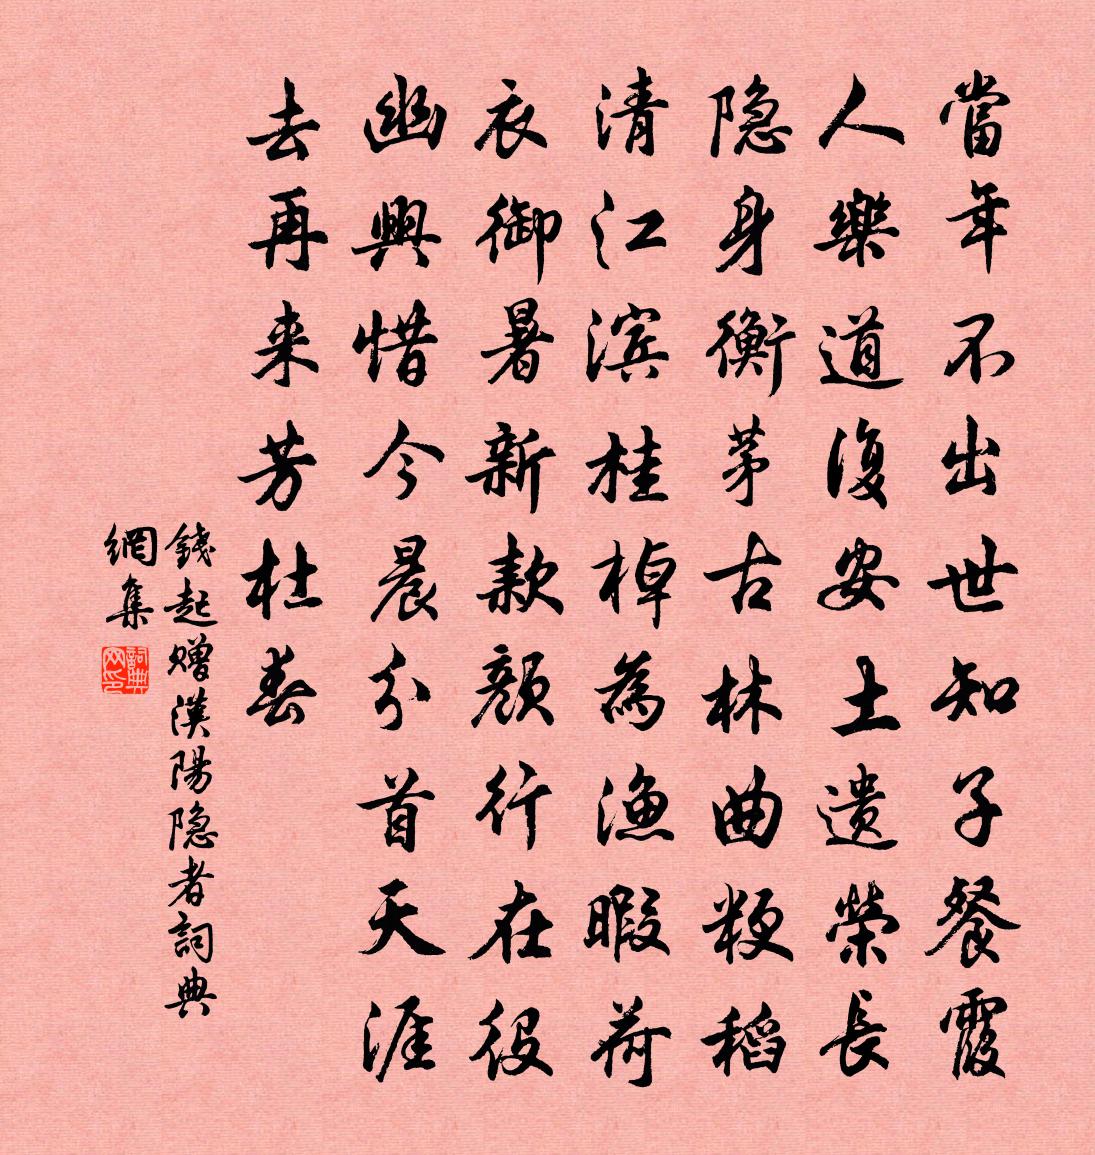 當年不出世知子餐霞
人樂道復安土遗榮長
隐身衡茅古林曲粳稻
清江滨桂棹為渔暇荷
衣御暑新款颜行在役
幽興惜今晨分首天涯
去再来芳杜春
錢起赠漢陽隐者詞典
網集
詞典
网印